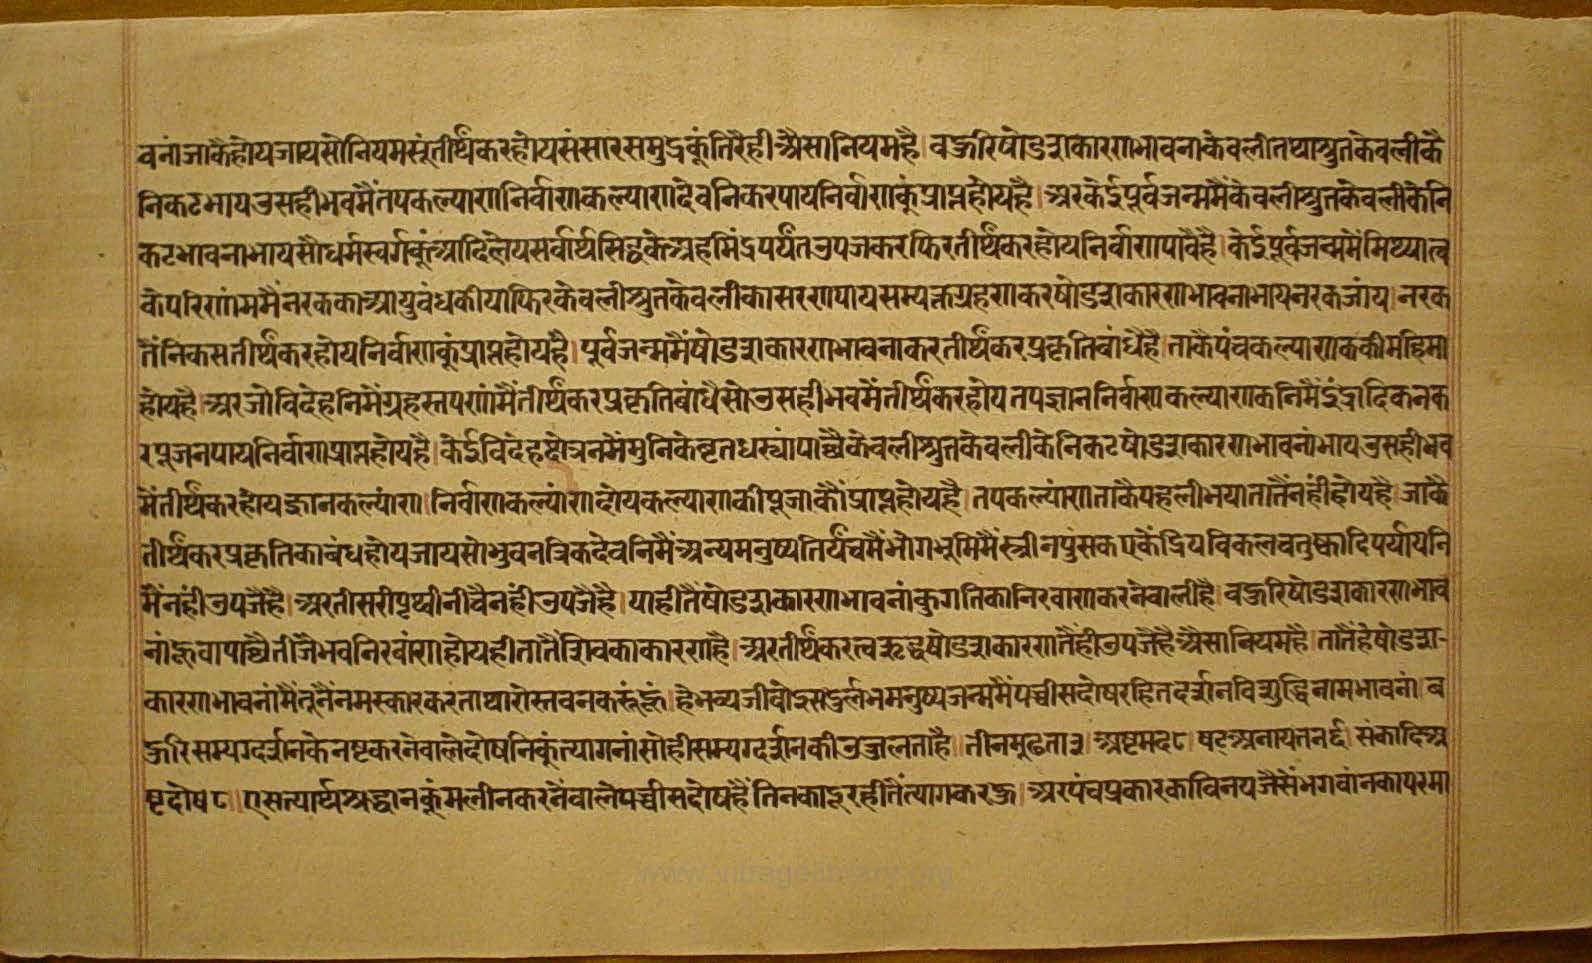 वनांजाकैहोयजायसोनियमस्यूंतीर्थंकरहोयसंसारसमुद्रकूंतिरैहीअैसानियमहै। बहुरिषोडशकारणभावनाकेवलीतथाश्रुतकेवलीकै
निकटभायउसहीभवमैंतपकल्याणनिर्वाणकल्याणदेवनिकरपायनिर्वाणकुंप्राप्तहोयहै। अरकेईपूर्वजन्ममैंकेवलीश्रुतकेवलीकेनि
कटभावनाभायसौधर्मस्वर्गकूंआदिलेयसर्वार्थसिद्धकेअहमिंद्रपर्यंतउपजकरफिरतीर्थंकरहोयनिर्वाणपावैहै। केईपूर्वजन्ममेंमिथ्यात्व
केपरिणांममैंनरककाआयुबंधकीयाफिरकेवलीश्रुतकेवलीकासरणपायसम्यक्तग्रहणकरषोडशकारणभावनाभायनरकजांय। नरक
तैंनिकसतीर्थंकरहोयनिर्वाणकुंप्राप्तहोयहै। पूर्वजन्ममैंषोडशकारणभावनाकरतीर्थंकरप्रकृतिबांधैहै। ताकैपंचकल्याणककीमहिमा
होयहै। अरजोविदेहनिमेंग्रहस्तपणांमैंतीर्थंकरप्रकृतिबांधैसोउसहीभवमेंतीर्थंकरहोयतपज्ञाननिर्वाणकल्याणकनिमैंइंद्रादिकनक
रपूजनपायनिर्वाणप्राप्तहोयहै। केईविदेहक्षेत्रनमेंमुनिकेव्रतधर्यांपाछैकेवलीश्रुतकेवलीकेनिकटषोडशकारणभावनांभायउसहीभव
मेंतीर्थंकरहोयज्ञानकल्यांण। निर्वाणकल्यांणदोयकल्याणकीपूजाकौंप्राप्तहोयहै। तपकल्यांणताकैपहलीभयातातैंनंहीहोयहै। जाकै
तीर्थंकरप्रकृतिकाबंधहोयजायसोभुवनत्रिकदेवनिमैंअन्यमनुष्यतिर्यंचमैंभोगभूमिमैंस्त्रीनपुंसकएकेंद्रियविकलचतुष्कादिपर्यायनि
मैंनंहीउपजैहै। अरतीसरीपृथ्वीनीचैनंहीउपजैहै। याहीतैंषोडशकारणभावनांकुगतिकानिरवारणकरनेवालीहै। बहुरिषोडशकारणभाव
नांहूवापाछैतीजैभवनिरवांणहोयहीतातैंशिवकाकारणहै। अरतीर्थंकरत्वऋद्धषोडशकारणतैंहीउपजैहैअैसानियमहै। तातैंहेषोडश-
कारणभावनांमैंतूनैंनमस्कारकरताथारोस्तवनकरूंहूं। हेभव्यजीवोइसदुर्लभमनुष्यजन्ममैंपच्चीसदोषरहितदर्शनविशुद्धिनामभावनां। ब
हुरिसम्यग्दर्शनकेनष्टकरनेवालेदोषनिकूंत्यागनांसोहीसम्यग्दर्शनकीउजलताहै। तीनमुढता३। अष्टमद८। षट्अनायतनई। संकादिअ
ष्टदोष८। एसत्यार्थश्रद्धानकूंमलीनकरनेंवालेपच्चीसदोषहैंतिनकादूरहीतैंत्यागकरहु। अरपंचप्रकारकाविनयजैसेंभगवांनकापरमा
www.vitragelibrary.org